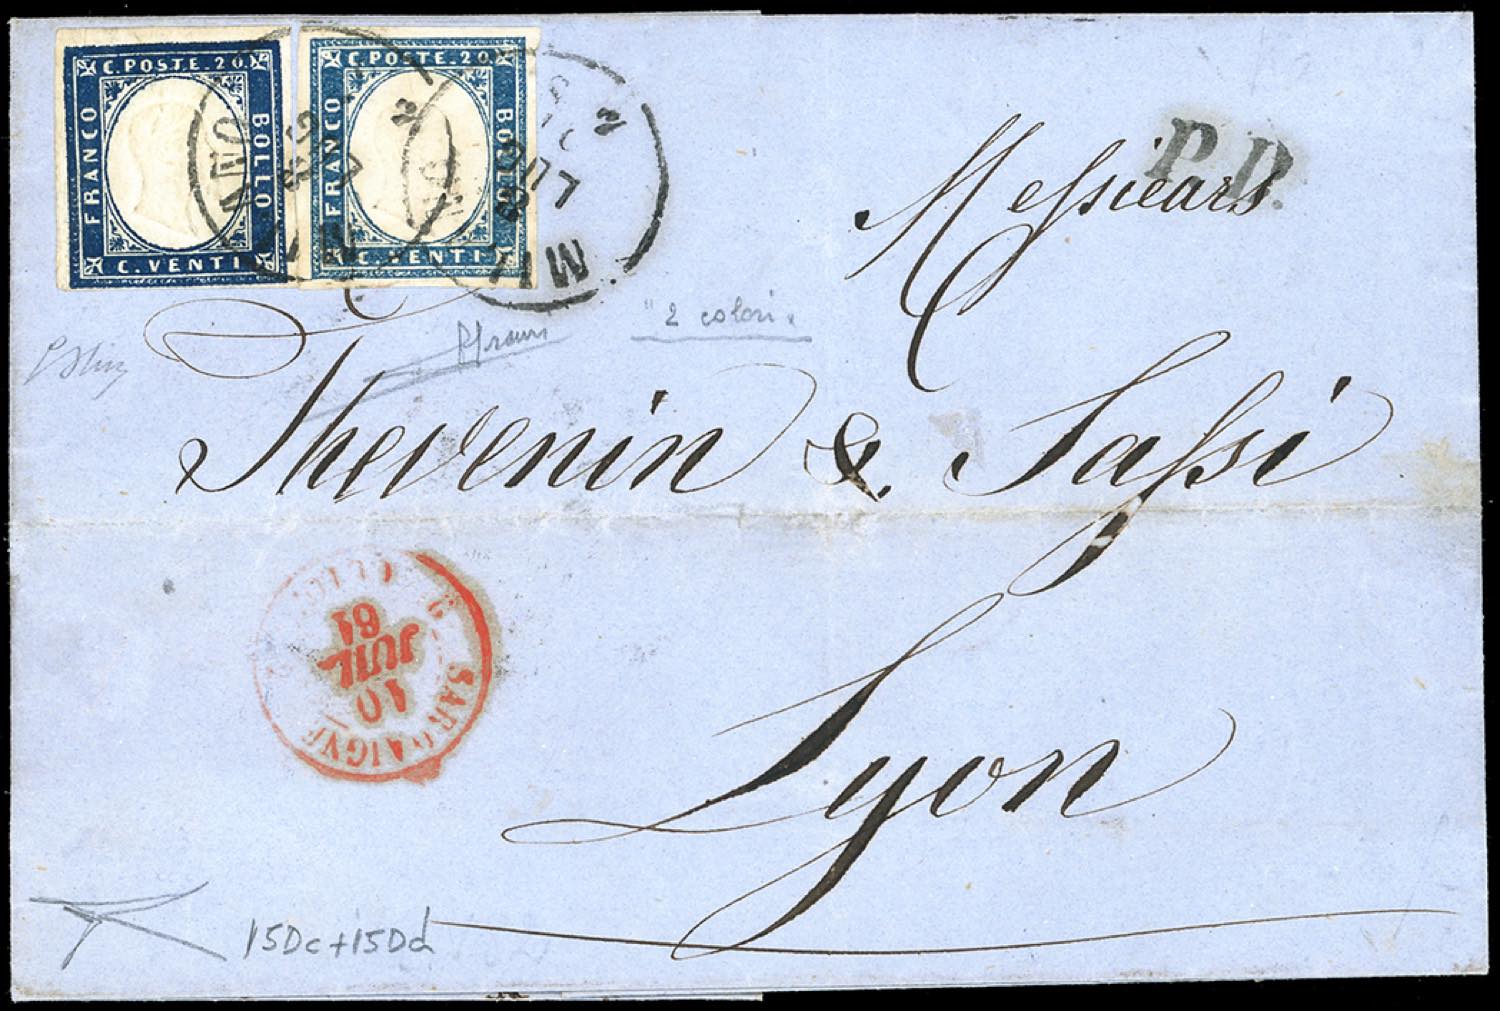 C. POSTE. 20.
FRANCO
BOLLO
C. VENTI
C. POSTE. 20.
FRANCO
BOLLO
C. VENTI
MILANO
LUG
MI
P.D.
Messieurs
"2 colori"
Thevenin & Sassi
SARDAIGNE
10
JUIL
61
Lyon
15Dc+15Dd